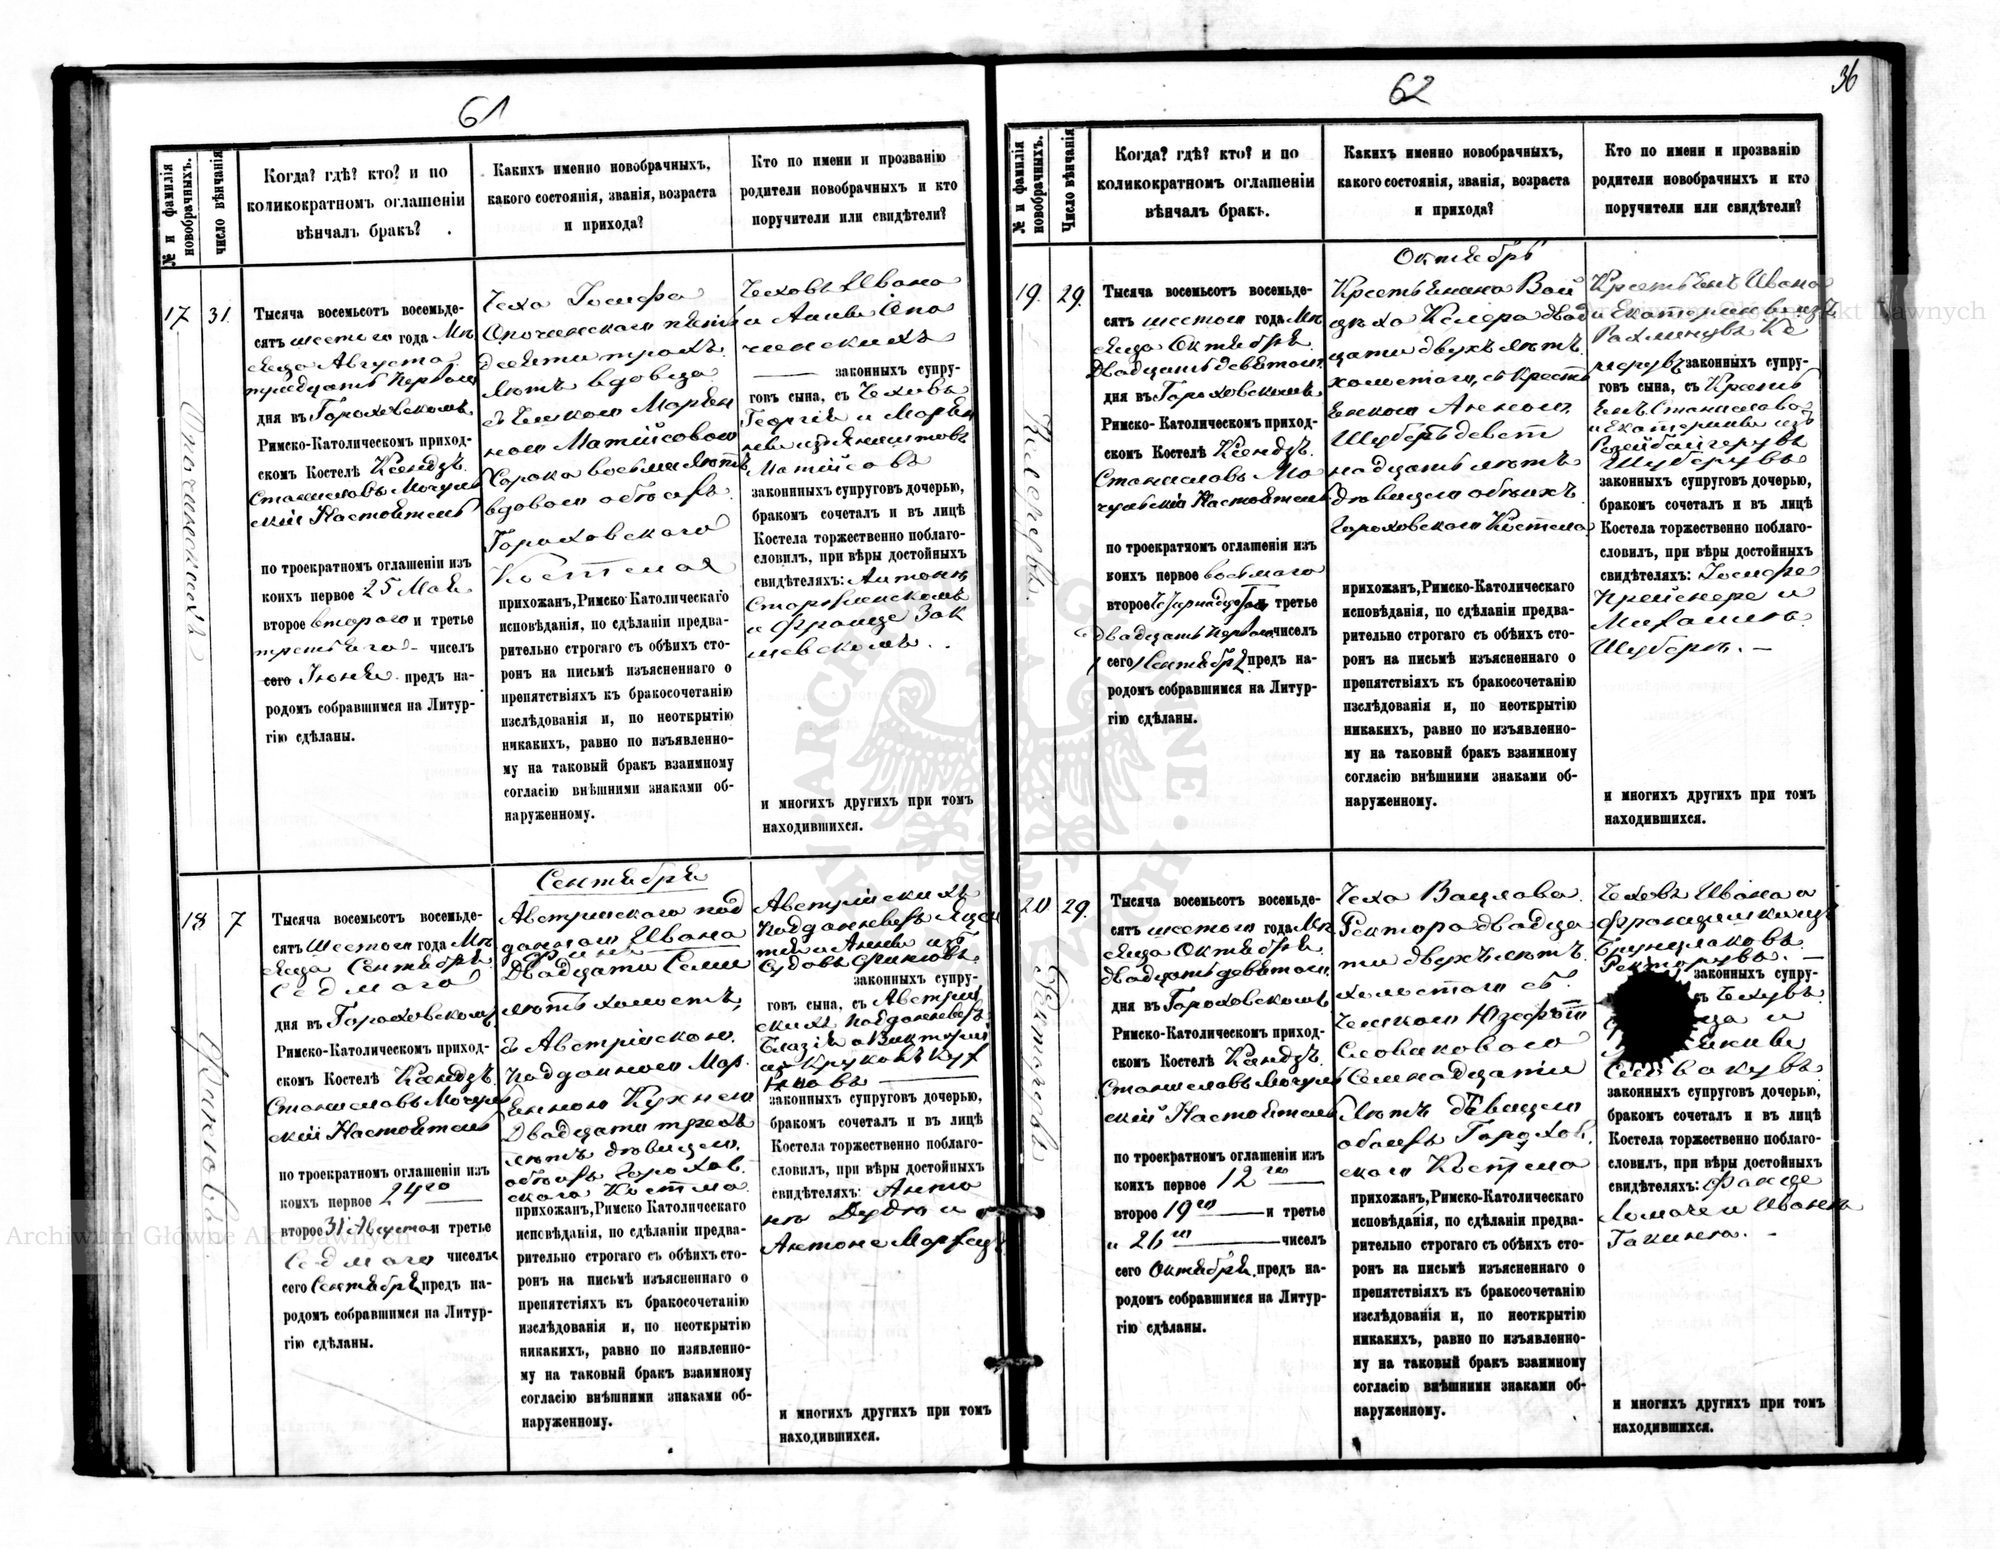 61
№ и фамилія новобрачныхъ.
число вѣнчанія
Когда? гдѣ? кто? и по
коликократномъ оглашеніи
вѣнчалъ бракъ?
Какихъ именно новобрачныхъ,
какого состоянія, званія, возраста
и прихода?
Кто по имени и прозванію
родители новобрачныхъ и кто
поручители или свидѣтели?
17
31.
Тысяча восемьсотъ восемьде-
сятъ шестого года Мѣ
сяца Августа
тридцать перваго
дня въ Гороховскомъ
Римско-Католическомъ приход-
скомъ Костелѣ Ксендзъ
Станиславъ Мочуль
скій Настоятель
по троекратномъ оглашеніи изъ
коихъ первое 25 Мая
второе второго и третье
третьяго чиселъ
сего Іюня предъ на-
родомъ собравшимся на Литур-
гію сдѣланы.
Чеха Іосифа
Опоченского пять
десяти трехъ
лѣтъ вдовца
съ Чешкою Маріан
ною Матѣйсовою
Сорока восьми лѣтъ
вдовою обоихъ
Гороховского
Костела
прихожан, Римско-Католическаго
исповѣданія, по сдѣланіи предва-
рительно строгаго съ обѣихъ сто-
ронъ на письмѣ изъясненнаго о
препятствіяхъ къ бракосочетанію
изслѣдованія и, по неоткрытію
никакихъ, равно по изъявленно-
му на таковый бракъ взаимному
согласію внѣшними знаками об-
наруженному.
Чеховъ Ивана
и Анны Опо
ченскихъ
законныхъ супру-
говъ сына, съ Чеховъ
Георгія и Маріан
ны изъ
Матѣйсовъ
законнныхъ супруговъ дочерью,
бракомъ сочеталъ и въ лицѣ
Костела торжественно поблаго-
словилъ, при вѣры достойныхъ
свидѣтеляхъ: Антонѣ
и Францѣ Зак
шевскомъ.
и многихъ другихъ при томъ
находившихся.
18
7
Тысяча восемьсотъ восемьде-
сятъ Шестого года Мѣ
сяца Сентября
Седмаго
дня въ Гороховскомъ
Римско-Католическомъ приход-
скомъ Костелѣ Ксендзъ
Станиславъ Мочуль
скій Настоятель
по троекратномъ оглашеніи изъ
коихъ первое 24го
второе 31 Августа и третье
Седмаго чиселъ
сего Сентября предъ на-
родомъ собравшимся на Литур-
гію сдѣланы.
Сентября
Австрійского под
данного Ивана
Двадцати Семи
лѣтъ холостъ,
съ Австрійскою
подданною Мар
Кухнею
Двадцати трехъ
лѣтъ дѣвицею,
обоихъ Горохов
ского Костела
прихожан, Римско Католическаго
исповѣданія, по сдѣланіи предва-
рительно строгаго съ обѣихъ сто-
ронъ на письмѣ изъясненнаго о
препятстіяхъ къ бракосочетанію
изслѣдованія и, по неоткрытію
никакихъ, равно по изявленно-
му на таковый бракъ взаимному
согласію внѣшними знаками об-
наруженному.
Австрійскихъ
Подданневъ
и Анны изъ
законныхъ супру-
говъ сына, съ Австрій
скихъ подданневъ
Блазія и Викторіи
законныхъ супруговъ дочерью,
бракомъ сочеталъ и въ лицѣ
Костела торжественно поблаго-
словилъ, при вѣры достойныхъ
свидѣтеляхъ: Анто
нѣ Дудѣ и
Антонѣ
и многихъ другихъ при томъ
находившихся.
62
36
№ и фамилія новобрачныхъ.
Число вѣнчанія
Когда? гдѣ? кто? и по
коликократномъ оглашеніи
вѣнчалъ бракъ.
Какихъ именно новобрачныхъ,
какого состоянія, званія, возраста
и прихода?
Кто по имени и прозванію
родители новобрачныхъ и кто
поручители или свидѣтели?
19.
29.
Тысяча восемьсотъ восемьде-
сятъ шестого года Мѣ
сяца Октября
Двадцать девятого
дня въ Гороховскомъ
Римско-Католическомъ приход-
скомъ Костелѣ Ксендзъ
Станиславъ Мо
чульскій Настоятель
по троекратномъ оглашеніи изъ
коихъ первое
второе и третье
двадцать перваго чиселъ
сего Сентября предъ на-
родомъ собравшимся на Литур-
гію сдѣланы.
Октябрь
Крестьянина Вой
цѣха Келера двад
цати двухъ лѣтъ
холостого, съ Кресть
янкою Анною
Шуберъ девят
надцать лѣтъ
дѣвицею обоихъ
Гороховского Костела
прихожан, Римско-Католическаго
исповѣданія, по сдѣланіи предва-
рительно строгаго съ обѣихъ сто-
ронъ на письмѣ изъясненнаго о
препятствіяхъ къ бракосочетанію
изслѣдованія и, по неоткрытію
никакихъ, равно по изъявленно-
му на таковый бракъ взаимному
согласію внѣшними знаками об-
наруженному.
Крестьянъ Ивана
и Екатерины изъ
законныхъ супру-
говъ сына, съ Кресть
янъ Станислава
и Екатерины изъ
Шуберувъ
законныхъ супруговъ дочерью,
бракомъ сочеталъ и въ лицѣ
Костела торжественно поблаго-
словилъ, при вѣры достойныхъ
свидѣтеляхъ: Іосифѣ
Крейцерѣ и
Михаилѣ
Шуберъ. —
и многихъ другихъ при томъ
находившихся.
20
29.
Тысяча восемьсотъ восемьде-
сятъ шестого года Мѣ
сяца Октября
двадцать девятого
дня въ Гороховскомъ
Римско-Католическомъ приход-
скомъ Костелѣ Ксендзъ
Станиславъ Мочуль
скій Настоятель
по троекратномъ оглашеніи изъ
коихъ первое 12го
второе 19го и третье
и 26го чиселъ
сего Октября, предъ на-
родомъ собравшимся на Литур-
гію сдѣланы.
Чеха Вацлава
Ректора двадца
ти двухъ лѣтъ
холостого съ
Чешкою Юзефою
Словаковою
Семнадцати
лѣтъ дѣвицею
обоихъ Горохов
ского Костела
прихожан, Римско-Католическаго
исповѣданія, по сдѣланіи предва-
рительно строгаго съ обѣихъ сто-
ронъ на письмѣ изъясненнаго о
препятствіяхъ къ бракосочетанію
изслѣдованія и, по неоткрытію
никакихъ, равно по изъявленно-
му на таковый бракъ взаимному
согласію внѣшними знаками об-
наруженному.
Чеховъ Ивана и
Францишки изъ
Ректорувъ. —
законныхъ супру-
съ Чехувъ
законныхъ супруговъ дочерью,
бракомъ сочеталъ и въ лицѣ
Костела торжественно поблаго-
словилъ, при вѣры достойныхъ
свидѣтеляхъ: Францѣ
и Иванѣ
и многихъ другихъ при томъ
находившихся.
Archiwum Główne Akt Dawnych
Archiwum Główne Akt Dawnych